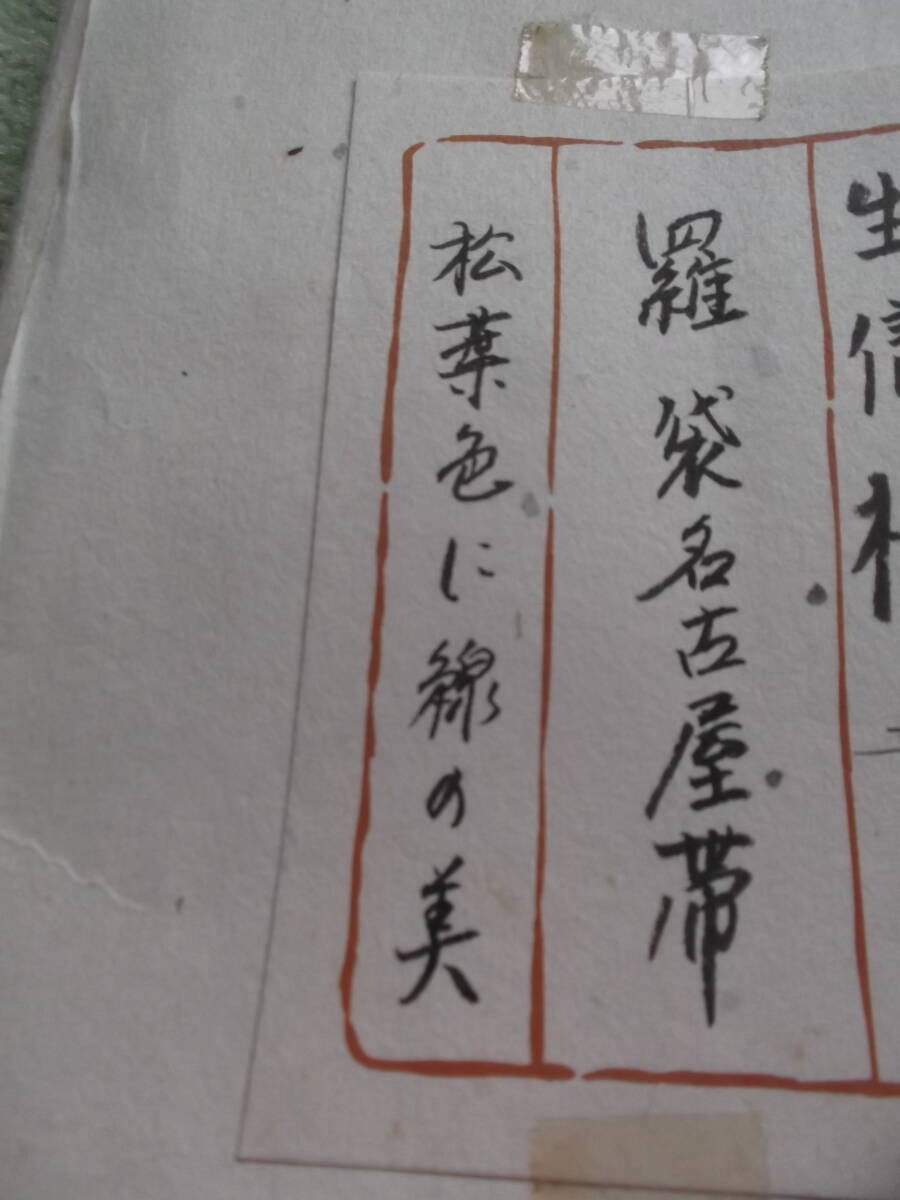 生信
羅 袋名古屋帯
松葉色に線の美